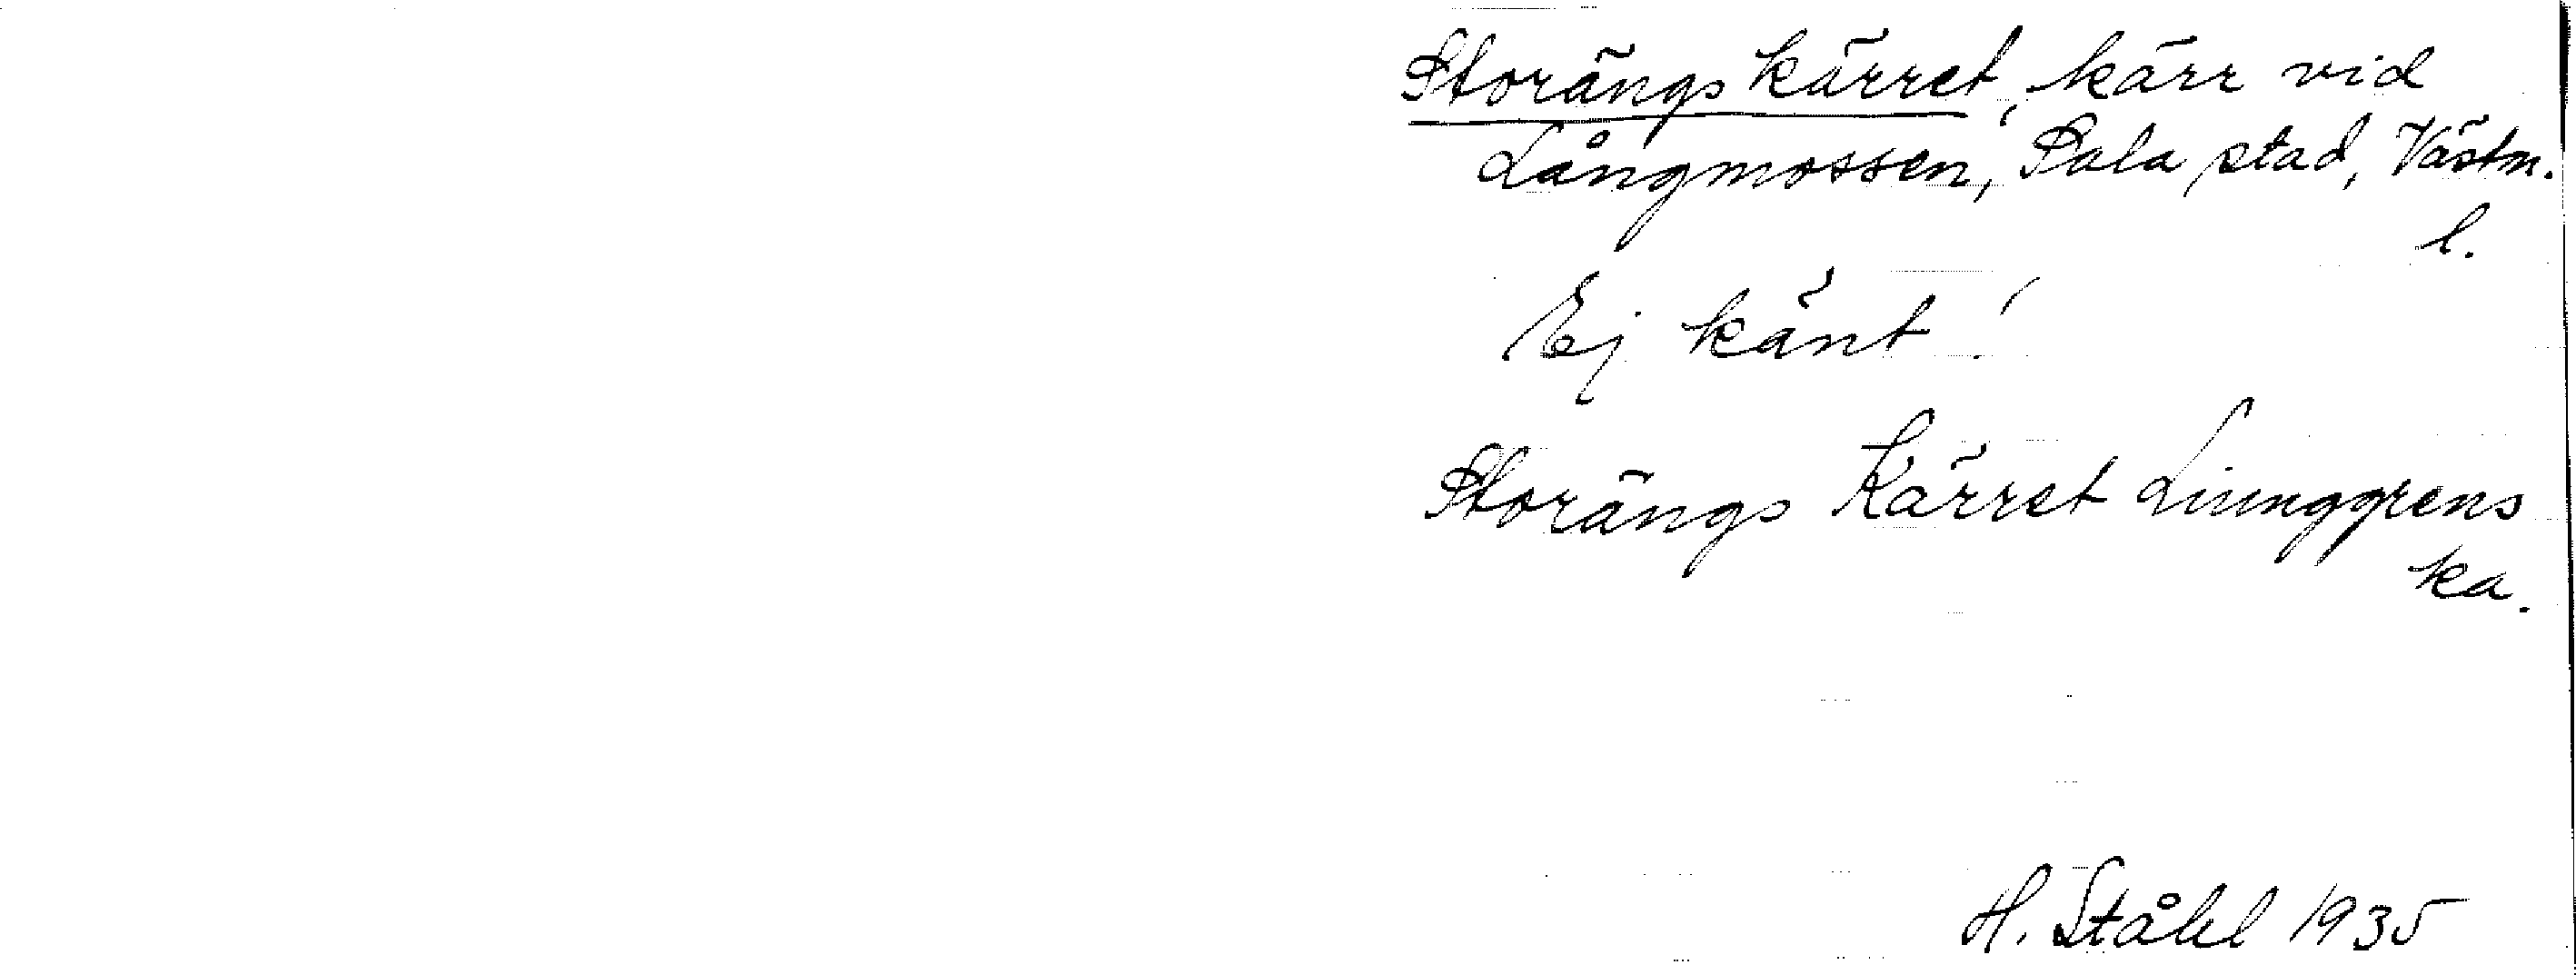 Storängskärret, kärr vid
Långmossen, Sala stad, Västm.
l.
Ej känt!
Storängs Kärret Liunggrens
ka.
H. Ståhl 1935